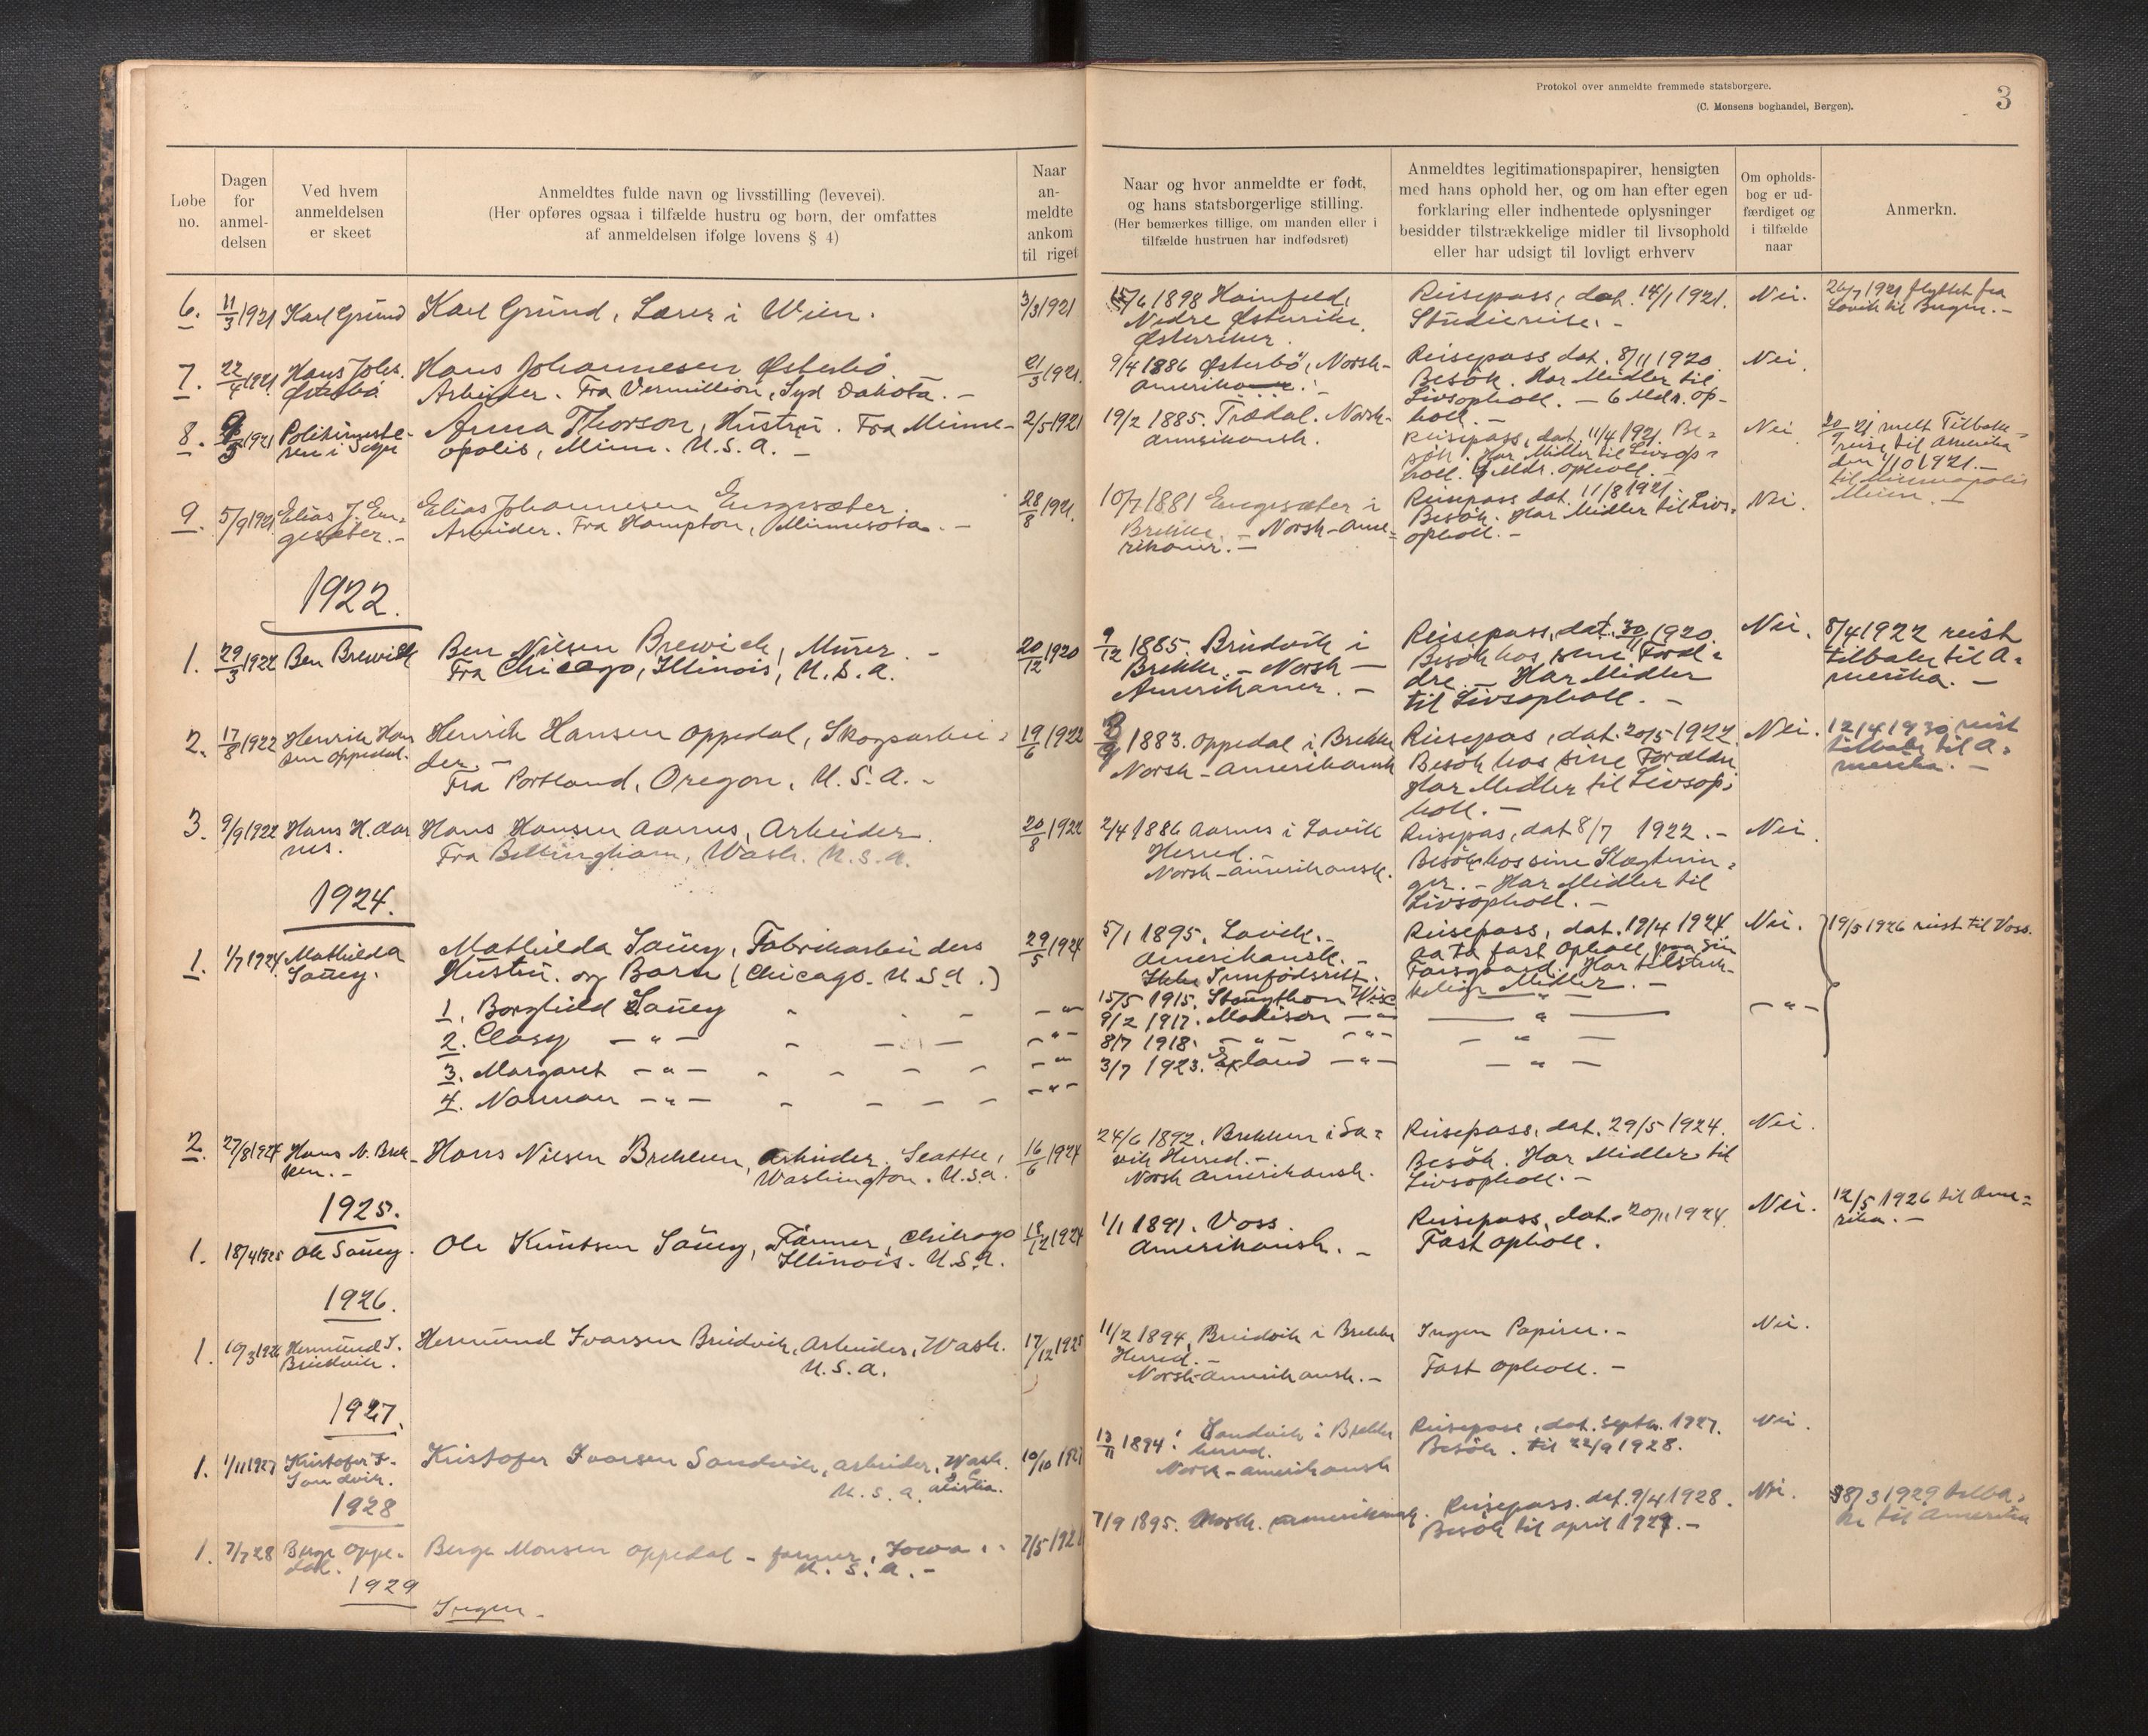 Protokol over anmeldte fremmede statsborgere.
(C. Monsens boghandel, Bergen).
3
Løbe no.
Dagen for anmel- delsen
Ved hvem anmeldelsen er skeet
Anmeldtes fulde navn og livsstilling (levevei).
(Her opføres ogsaa i tilfælde hustru og børn, der omfattes
af anmeldelsen ifølge lovens § 4)
Naar an- meldte ankom til riget
Naar og hvor anmeldte er født,
og hans statsborgerlige stilling.
(Her bemærkes tillige, om manden eller i
tilfælde hustruen har indfødsret)
Anmeldtes legitimationspapirer, hensigten
med hans ophold her, og om han efter egen
forklaring eller indhentede oplysninger
besidder tilstrækkelige midler til livsophold
eller har udsigt til lovligt erhverv
Om opholds- bog er ud- færdiget og i tilfælde naar
Anmerkn.
6. 11/3 1921 Karl Gründ Karl Gründ, Lærer i Wien. 3/3 1921
15/6 1898 Hainfeld, Reisepass, dat. 14/1 1921. Nei. 26/7 1921 flyttet fra
Nedre Østerrike Studiereise. - Lavik til Bergen. -
Østerriker.
7. 22/4 1921. Hans Johs. Hans Johannesen Østerbö 21/3 1921.
Østerbö Arbeider. Fra Vermillion, Syd Dakota. -
9/4 1886 Østerbö, Norsk- Reisepass dat. 8/11 1920. Nei.
Besök. Har Midler til
Livsopholl. - 6 Mdr. op-
holl. -
8. 1921 Politimeste- Anna Thorson, Hustru. Fra Minne- 2/5 1921
ren i Sogn opolis, Minn. U.S.A. -
19/2 1885. Trædal. Norsk- Reisepass, dat. 11/4 1921. Be- Nei melt Tilbake-
amerikansk. sök. Har Midler til Livsop- reise til Amerika
holl. Mdr. opholl. - den 1/10 1921. -
til Minneapolis
Minn.
9. 5/9 1921 Elias J. En- Elias Johannesen Engesæter. 28/8 1921.
gesæter. - Arbeider. Fra Hampton, Minnesota. -
10/7 1881 Engesæter i Reisepass dat. 11/8 1921. Nei.
Brekke. - Norsk-Ame- Besök. Har Midler til Livs-
rikaner. - opholl. -
1922.
1. 29/3 1922 Ben Brewick Ben Nilsen Brewick, Murer. - 20/12 1920
Fra Chicago, Illinois, U.S.A.
9/12 1885. Breidvik i Reisepass, dat. 30/11 1920. Nei. 8/4 1922 reist
Brekke. - Norsk - Besök hos sine Foræl- tilbake til A-
Amerikaner. - dre. - Har Midler merika. -
til Livsopholl. -
2. 17/8 1922 Henrik Han Henrik Hansen Oppedal, Skogsarbei- 19/6 1922
sen Oppedal. der. -
Fra Portland, Oregon, U.S.A. -
1883. Oppedal i Brekke Reisepas, dat. 20/5 1922. Nei. 12/4 1930 reist
Norsk-amerikansk Besök hos sine Forældre tilbake til A-
Har Midler til Livsop- merika. -
holl. -
3. 9/9 1922 Hans H. Aar Hans Hansen Aarnes, Arbeider. 20/8 1922
nes. Fra Bellingham, Wash. U.S.A.
2/4 1886 Aarnes i Lavik Reisepas, dat 8/7 1922. - Nei.
Herred. - Besök hos sine Slægtnin-
Norsk-amerikansk. ger. - Har Midler til
Livsopholl. -
1924.
1. 1/7 1924. Mathilda Mathilda Sauey, Fabrikarbeiders 29/5 1924
Sauey. Hustru og Barn (Chicago. U.S.A.)
5/1 1895. Lavik. - Reisepass, dat. 19/4 1924 Nei. 19/5 1926 reist til Voss.
Amerikansk. - aa ta fast opholl paa sin
Ikke Innfødsrett. Farsgaard. Har tilstræk-
kelige Midler. -
1. Borghild Sauey - " - 15/5 1915. Stoughton Wisc
2. Clary - " - - " - 9/2 1917. Madison - " -
3. Margaret - " - - " - 8/7 1918. - " - - " -
4. Norman - " - - " - 3/7 1923. Exland - " -
2. 27/8 1924 Hans N. Brek- Hans Nilsen Brekken, Arbeider. Seattle, 16/6 1924
ken. - Washington. U.S.A.
24/6 1892. Brekken i La- Reisepass, dat. 29/5 1924. Nei.
vik Herred. - Besök. Har Midler til
Norsk Amerikansk. Livsopholl. -
1925.
1. 18/4 1925 Ole Sauey. Ole Knutsen Sauey, Farmer, Chikago 1924
Illinois. U.S.A.
1/1 1891. Voss. Reisepass, dat. 1924. Nei. 12/5 1926 til Ame-
Amerikansk. - Fast opholl. rika. -
1926.
1. 10/3 1926 Hermund I. Hermund Ivarsen Breidvik, Arbeider, Wash. 17/12 1925
Breidvik. U.S.A.
11/2 1894, Breidvik i Brekke Ingen Papirer. - Nei.
Herred. - Fast opholl. -
Norsk-amerikansk. -
1927.
1. 1/11 1927 Kristofer I. Kristofer Ivarsen Sandvik, arbeider, Wash. 10/10 1927
Sandvik. U.S.A.
13/11 1894. Sandvik i Brekke Reisepass, dat. septr. 1927. Nei.
herred. Besök. til 22/9 1928.
Norsk-amerikansk
1928
1. 7/7 28 Berge Oppe- Berge Monsen Oppedal - farmer, Iowa. - 7/5 1928
dal. U.S.A. -
7/9 1895. Norsk. amerikansk. Reisepass. dat. 9/4 1928. Nei. 8/3 1929 tilba-
Besök til april 1929. - ke til Amerika
1929
Ingen. -